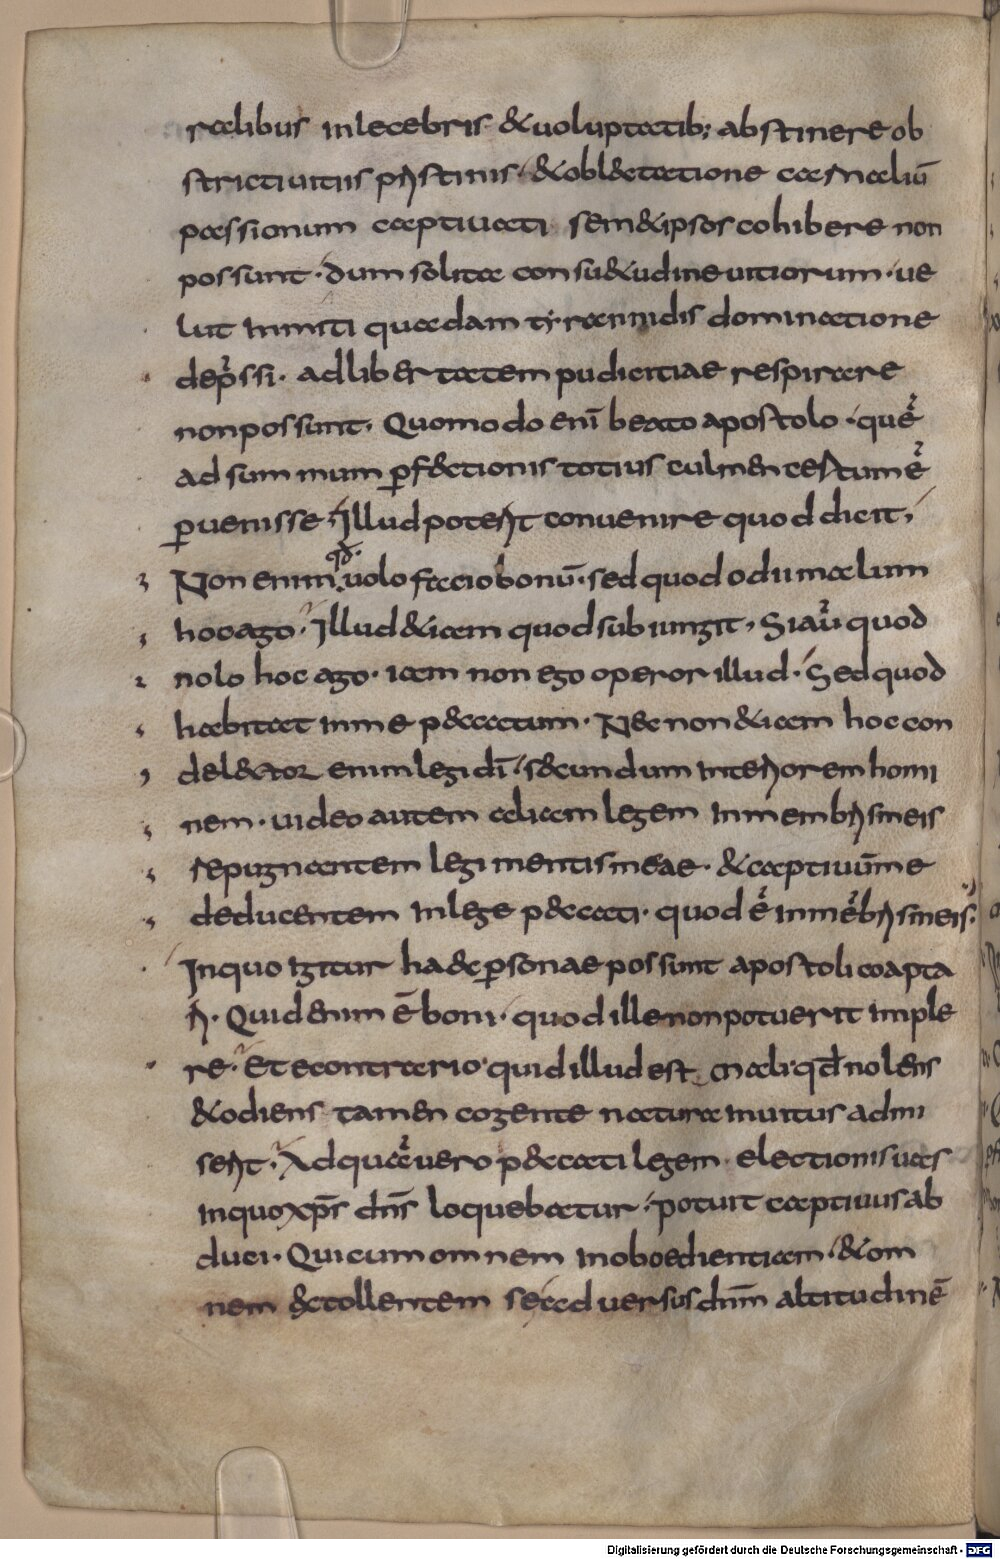 ralibus inlecebris &uoluptatib; abstinere ob
stricti uitiis pristinis · &obl&tatione carnaliū
passionum captiuati sem&ipsos cohibere non
possunt · dum solita consu&udine uitiorum · ue
lut inmiti quadam tyrannidis dominatione
dep̄ssi · ad lib&rtatem pudicitiae respirare
non possunt · Quomodo enī beato apostolo · quē
ad summum ꝑf&ctionis totius culmen certum ē
ꝑuenisse · Illud poterit conuenire quod dicit,
Non enim qđ uolo facio bonū · sed quod odi malum
hoc ago · Illud &iam quod subiungit, Si aū quod
nolo hoc ago · iam non ego operor illud · Sed quod
habitat in me p&ccatum · Nec non &iam hoc con
del&ctor enim legi dī · secundum interiorem homi
nem · uideo autem aliam legem in membris meis
repugnantem legi mentis meae · &captiuūme
ducentem in lege p&ccati · quod ē in mēbris meis ·
In quo igitur haec ꝑsonae possunt apostoli coapta
ri · Quid enim ē boni · quod ille non potuerit imple
re · Et e contrario quid illud est mali · qđ nolens
&odiens tamen cogente natura inuitus admi
serit · Ad quā uero p&ccati legem electionis uas
in quo xp̄s dn̄s loquebatur · potuit captiuus ab
duci · Qui cum omnem inoboedientiam · &om
nem &tollentem se aduersus dnm̄ altitudinē
Digitalisierung gefördert durch die Deutsche Forschungsgemeinschaft - DFG